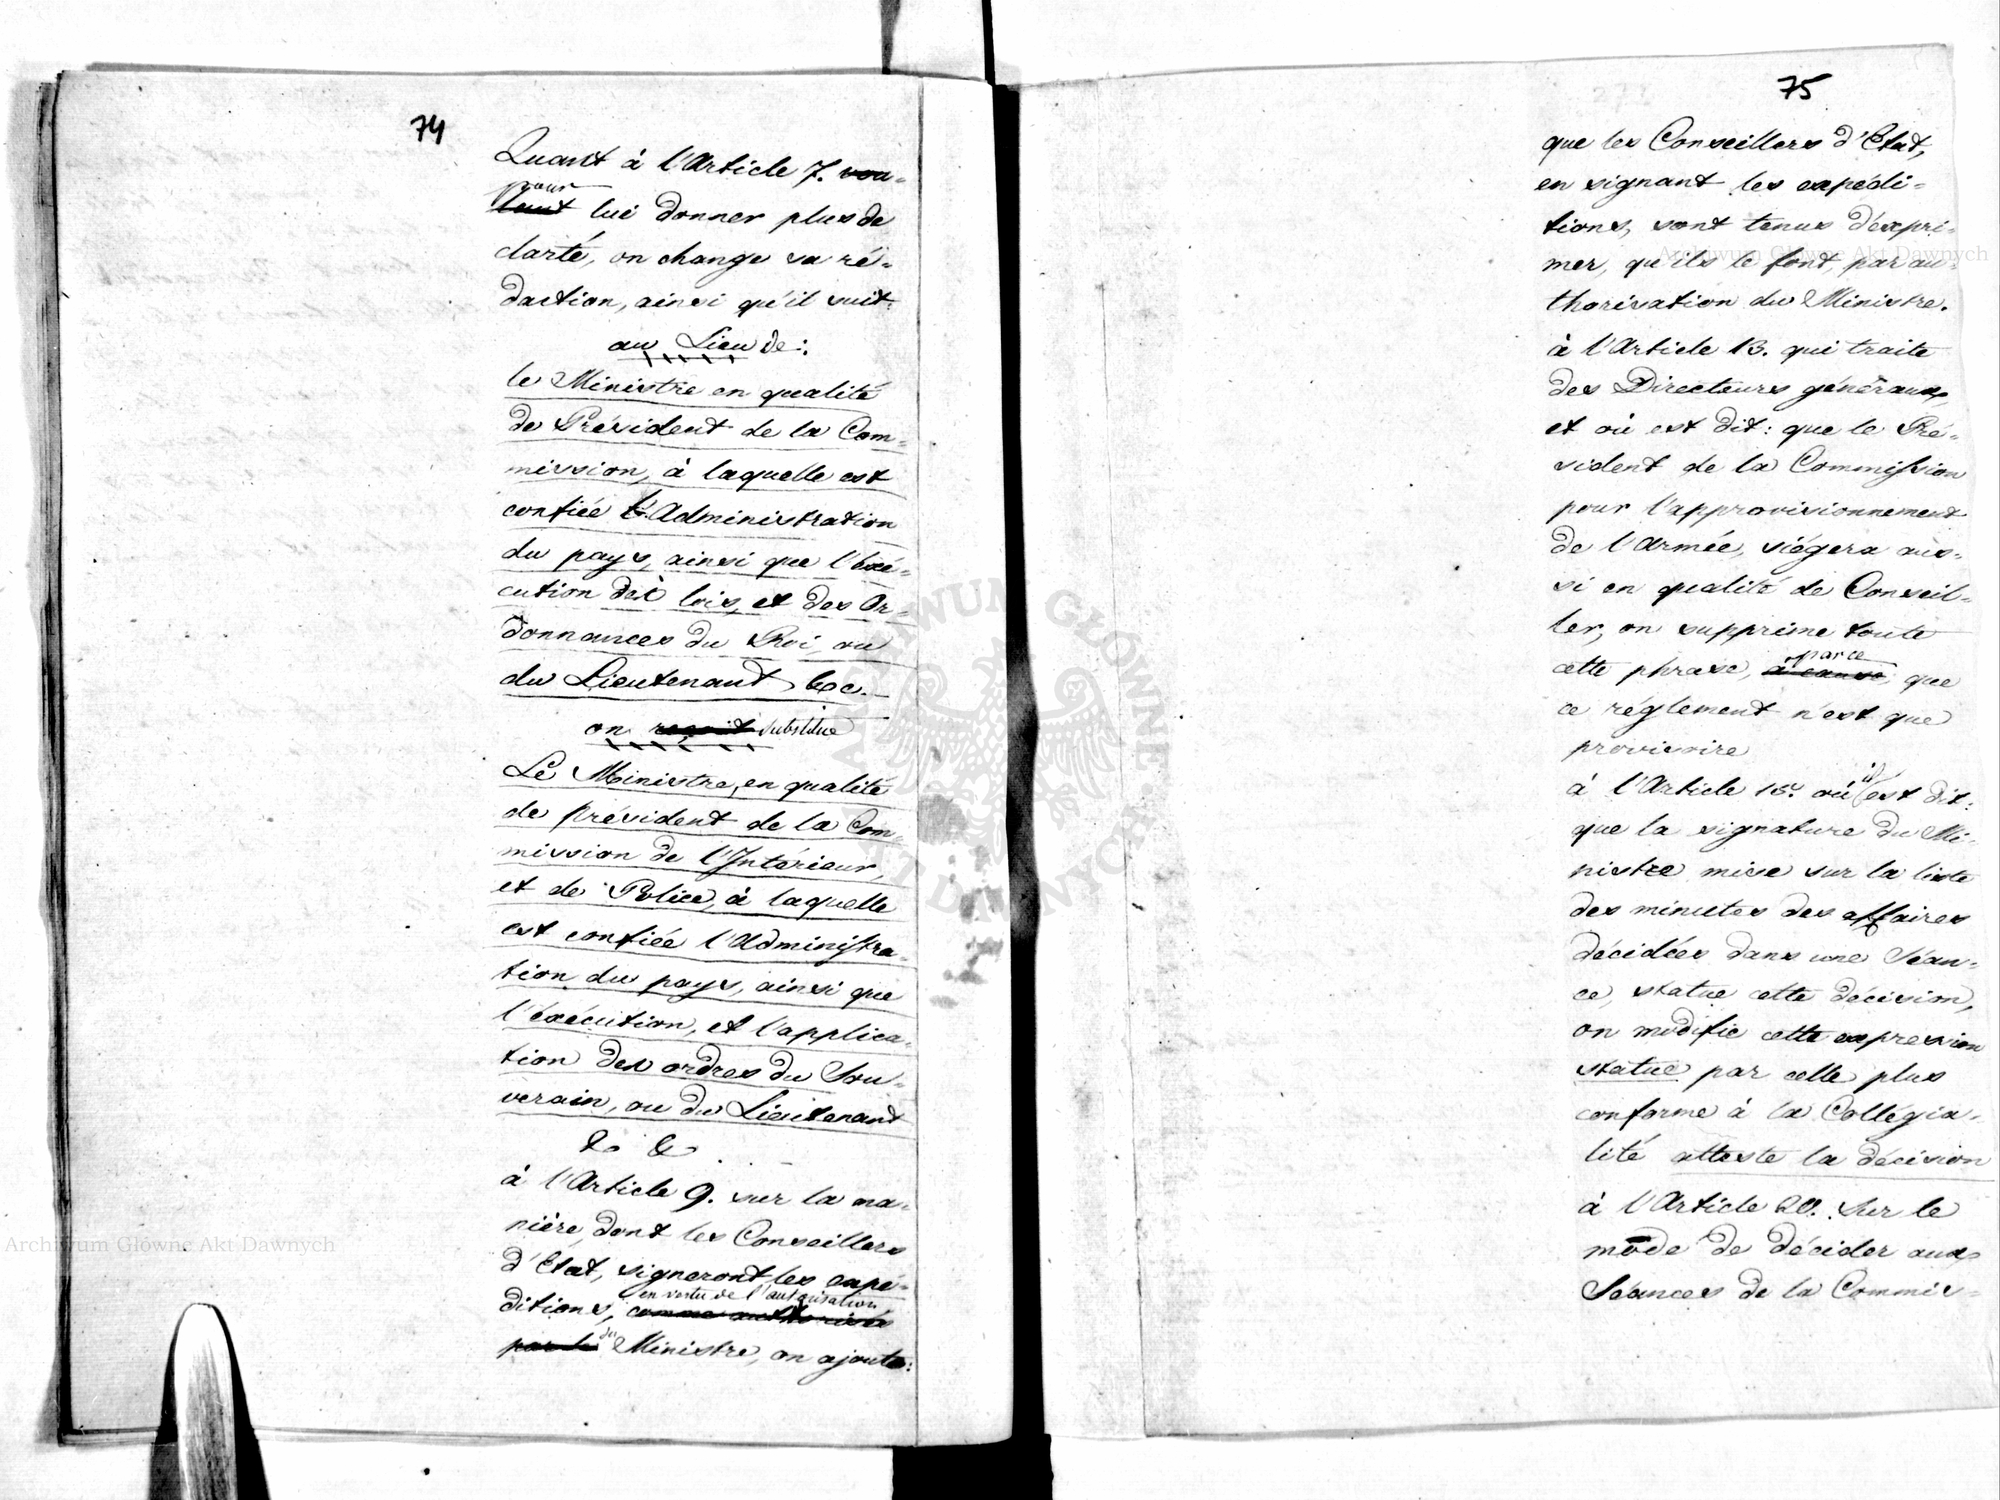 74
Quant à l'Article 7. vou-
pour
lant lui donner plus de
clarté, on change sa ré-
daction, ainsi qu'il suit:
au Lieu de:
le Ministre en qualité
de Président de la Com-
mission, à laquelle est
confiée l'Administration
du pays, ainsi que l'éxé-
cution des lois, et des Or-
donnances du Roi, ou
du Lieutenant &c.
on reçoit substitue
Le Ministre, en qualité
de président de la Com-
mission de l'Intérieur,
et de Police, à laquelle
est confiée l'Administra-
tion du pays, ainsi que
l'éxécution, et l'applica-
tion des ordres du Sou-
verain, ou du Lieutenant
& &
à l'Article 9. sur la ma-
nière, dont les Conseillers
d'Etat, signeront les expé-
en vertu de l'autorisation
ditions, comme authorisés
par le du Ministre, on ajoute:
75
que les Conseillers d'Etat,
en signant les expédi-
tions, sont tenus d'expri-
mer, qu'ils le font, par au-
thorisation du Ministre.
à l'Article 13. qui traite
des Directeurs généraux,
et où est dit: que le Pré-
sident de la Commission
pour l'approvisionnement
de l'Armée, siégera aus-
si en qualité de Conseil-
ler, on supprime toute
parce
cette phrase, à cause, que
ce réglement n'est que
provisoire
à l'Article 16. où il est dit:
que la signature du Mi-
nistre mise sur la liste
des minutes des affaires
décidées dans une Séan-
ce, statue cette décision,
on modifie cette expression
statue par celle plus
conforme à la Collégia-
lité atteste la décision
à l'Article 20. sur le
mode de décider aux
Séances de la Commis-
Archiwum Główne Akt Dawnych
Archiwum Główne Akt Dawnych
ARCHIWUM GŁÓWNE AKT DAWNYCH